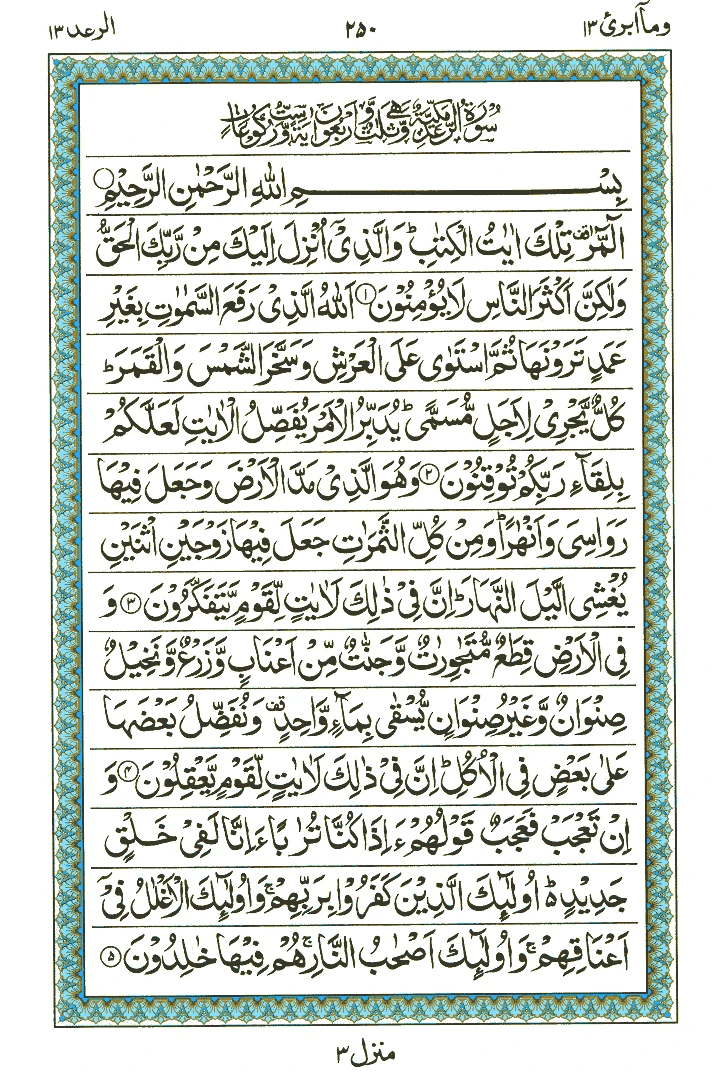 وماۤ ابرئ ۱۳
۲۵۰
الرعد ۱۳
سُوْرَةُ الرَّعْدِ مَكِّيَّةٌ وَّهِيَ ثَلٰثٌ وَّاَرْبَعُوْنَ اٰيَةً وَّسِتُّ رُكُوْعَاتٍ
بِسْمِ اللهِ الرَّحْمٰنِ الرَّحِيْمِ
الٓمّٓرٰ ࣞ تِلْكَ اٰيٰتُ الْكِتٰبِ ؕ وَالَّذِيْۤ اُنْزِلَ اِلَيْكَ مِنْ رَّبِّكَ الْحَقُّ
وَلٰكِنَّ اَكْثَرَ النَّاسِ لَا يُؤْمِنُوْنَ ۱ اَللهُ الَّذِيْ رَفَعَ السَّمٰوٰتِ بِغَيْرِ
عَمَدٍ تَرَوْنَهَا ثُمَّ اسْتَوٰى عَلَى الْعَرْشِ وَسَخَّرَ الشَّمْسَ وَالْقَمَرَ ؕ
كُلٌّ يَّجْرِيْ لِاَجَلٍ مُّسَمًّى ؕ يُدَبِّرُ الْاَمْرَ يُفَصِّلُ الْاٰيٰتِ لَعَلَّكُمْ
بِلِقَآءِ رَبِّكُمْ تُوْقِنُوْنَ ۲ وَهُوَ الَّذِيْ مَدَّ الْاَرْضَ وَجَعَلَ فِيْهَا
رَوَاسِيَ وَاَنْهٰرًا ؕ وَمِنْ كُلِّ الثَّمَرٰتِ جَعَلَ فِيْهَا زَوْجَيْنِ اثْنَيْنِ
يُغْشِي الَّيْلَ النَّهَارَ ؕ اِنَّ فِيْ ذٰلِكَ لَاٰيٰتٍ لِّقَوْمٍ يَّتَفَكَّرُوْنَ ۳ وَ
فِي الْاَرْضِ قِطَعٌ مُّتَجٰوِرٰتٌ وَّجَنّٰتٌ مِّنْ اَعْنَابٍ وَّزَرْعٌ وَّنَخِيْلٌ
صِنْوَانٌ وَّغَيْرُ صِنْوَانٍ يُّسْقٰى بِمَآءٍ وَّاحِدٍ ࣞ وَنُفَضِّلُ بَعْضَهَا
عَلٰى بَعْضٍ فِي الْاُكُلِ ؕ اِنَّ فِيْ ذٰلِكَ لَاٰيٰتٍ لِّقَوْمٍ يَّعْقِلُوْنَ ۴ وَ
اِنْ تَعْجَبْ فَعَجَبٌ قَوْلُهُمْ ءَاِذَا كُنَّا تُرٰبًا ءَاِنَّا لَفِيْ خَلْقٍ
جَدِيْدٍ ؕ اُولٰٓئِكَ الَّذِيْنَ كَفَرُوْا بِرَبِّهِمْ ۚ وَاُولٰٓئِكَ الْاَغْلٰلُ فِيْۤ
اَعْنَاقِهِمْ ۚ وَاُولٰٓئِكَ اَصْحٰبُ النَّارِ ۚ هُمْ فِيْهَا خٰلِدُوْنَ ۵
منزل ۳